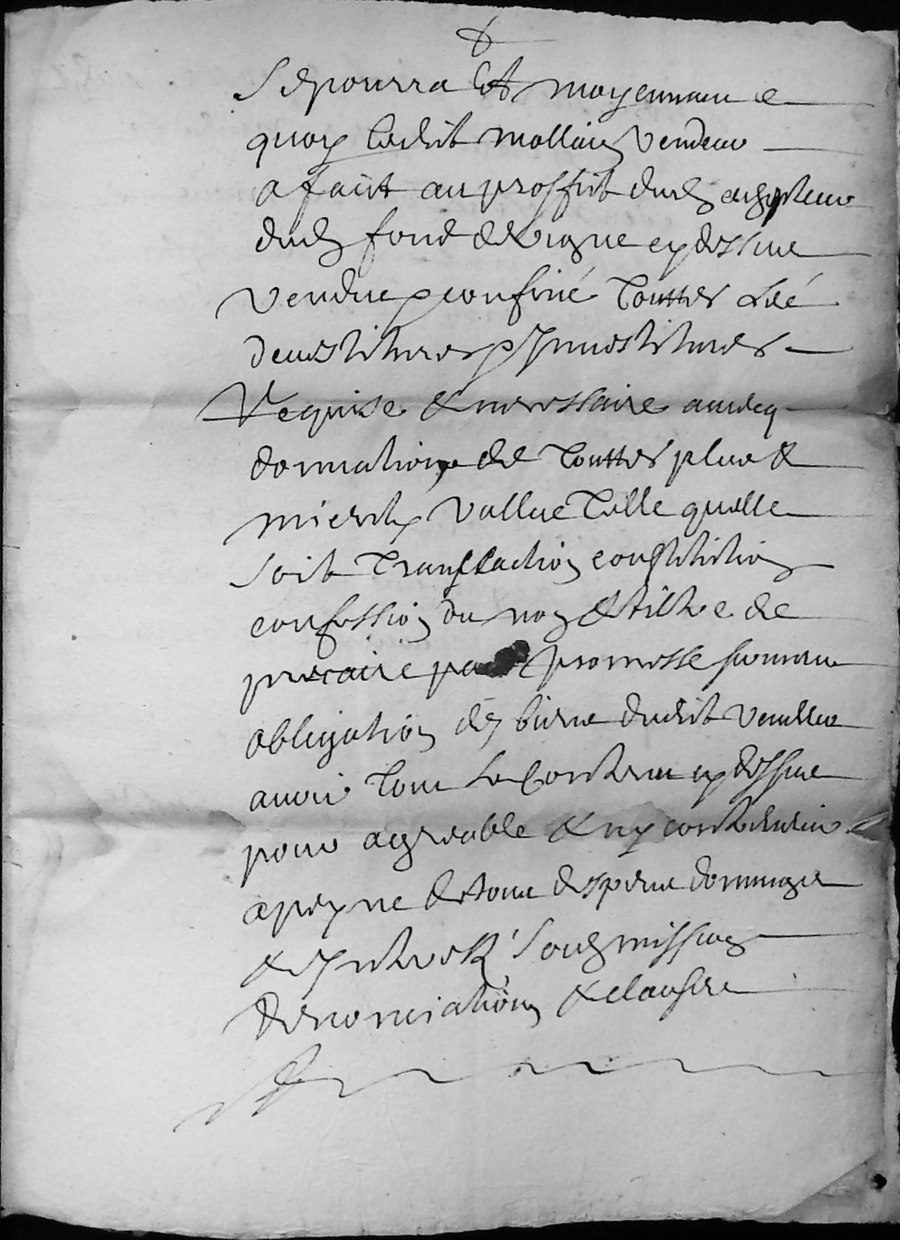 se pourra Et moyennant ce
quoy ledit mollain vendeur
a faict au proffit dud achepteur
dud fond de vigne cy dessus
vendue & confiné Touttes les
devestitures & Jnvestitures
Requise & necessaire avecq
donnation de Touttes plus &
mieux vallue Telle quelle
soit Translaction constitution
confession du nom & tiltre de
precaire par promesse serment
obligation des biens dudit vendeur
avoir Tout le Contenu cy dessus
pour agreable & ny contrevenir
a peyne de tous despens dommages
& Jnterestz soubmissions
Renonciations & clauses